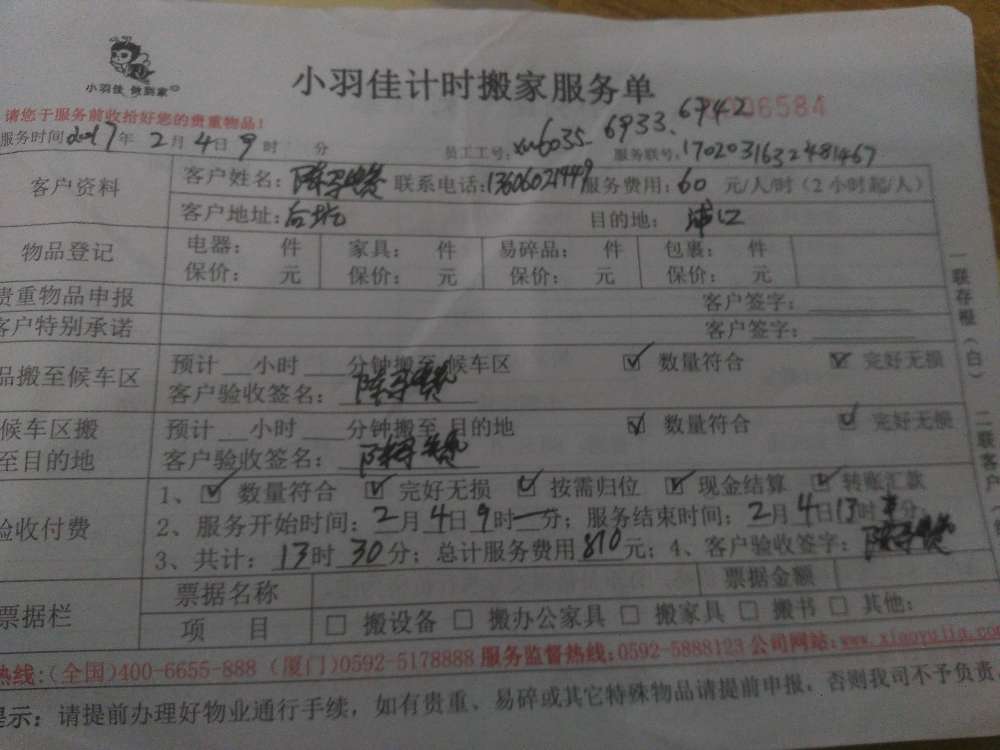 小羽佳 做到家
小羽佳计时搬家服务单
6584
请您于服务前收拾好您的贵重物品!
服务时间2017年2月4日9时 分 员工工号:xm6035. 6933. 6742 服务联号:1702031632481467
客户资料 客户姓名: 联系电话:13606021449 服务费用:60元/人/时(2小时起/人)
客户地址:后坑 目的地:浦口
物品登记 电器: 件 家具: 件 易碎品: 件 包裹: 件
保价: 元 保价: 元 保价: 元 保价: 元
贵重物品申报 客户签字:
客户特别承诺 客户签字:
品搬至候车区 预计__小时___分钟搬至 候车区 ☑ 数量符合 ☑ 完好无损
客户验收签名:
候车区搬至目的地 预计__小时___分钟搬至 目的地 ☑ 数量符合 ☑ 完好无损
客户验收签名:
验收付费 1、☑ 数量符合 ☑ 完好无损 ☑ 按需归位 ☑ 现金结算 ☑ 转账汇款
2、服务开始时间:2月4日9时一分;服务结束时间:2月4日13时半分;
3、共计:13时30分;总计服务费用810元;4、客户验收签字:
票据栏 票据名称 票据金额
项 目 □ 搬设备 □ 搬办公家具 □ 搬家具 □ 搬书 □ 其他:
热线:(全国)400-6655-888 (厦门)0592-5178888 服务监督热线:0592-5888123 公司网站:www.xiaoyujia.co
提示:请提前办理好物业通行手续,如有贵重、易碎或其它特殊物品请提前申报,否则我司不予负责
一联存根(白) 二联客户